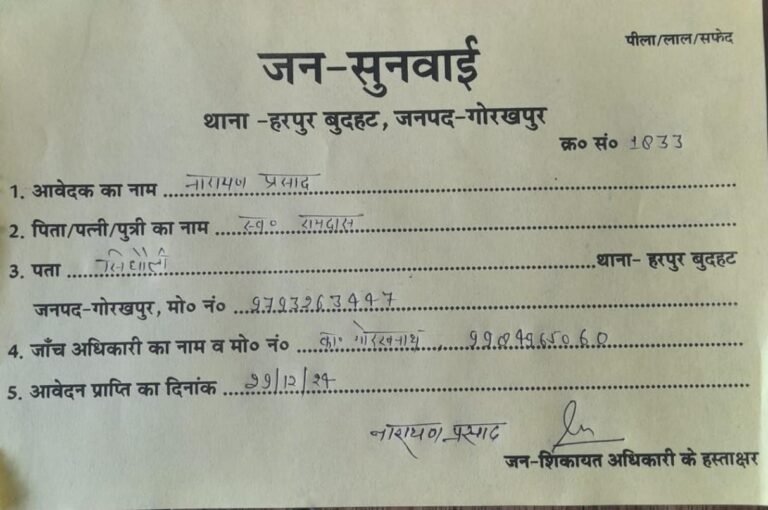 पीला/लाल/सफेद
जन-सुनवाई
थाना -हरपुर बुदहट, जनपद-गोरखपुर
क्र० सं० 1833
1. आवेदक का नाम नारायण प्रसाद
2. पिता/पत्नी/पुत्री का नाम स्व० रामदास
3. पता सिधौली थाना- हरपुर बुदहट
जनपद-गोरखपुर, मो० नं०
4. जाँच अधिकारी का नाम व मो० नं० का० गोरखनाथ,
5. आवेदन प्राप्ति का दिनांक
नारायण प्रसाद
जन-शिकायत अधिकारी के हस्ताक्षर